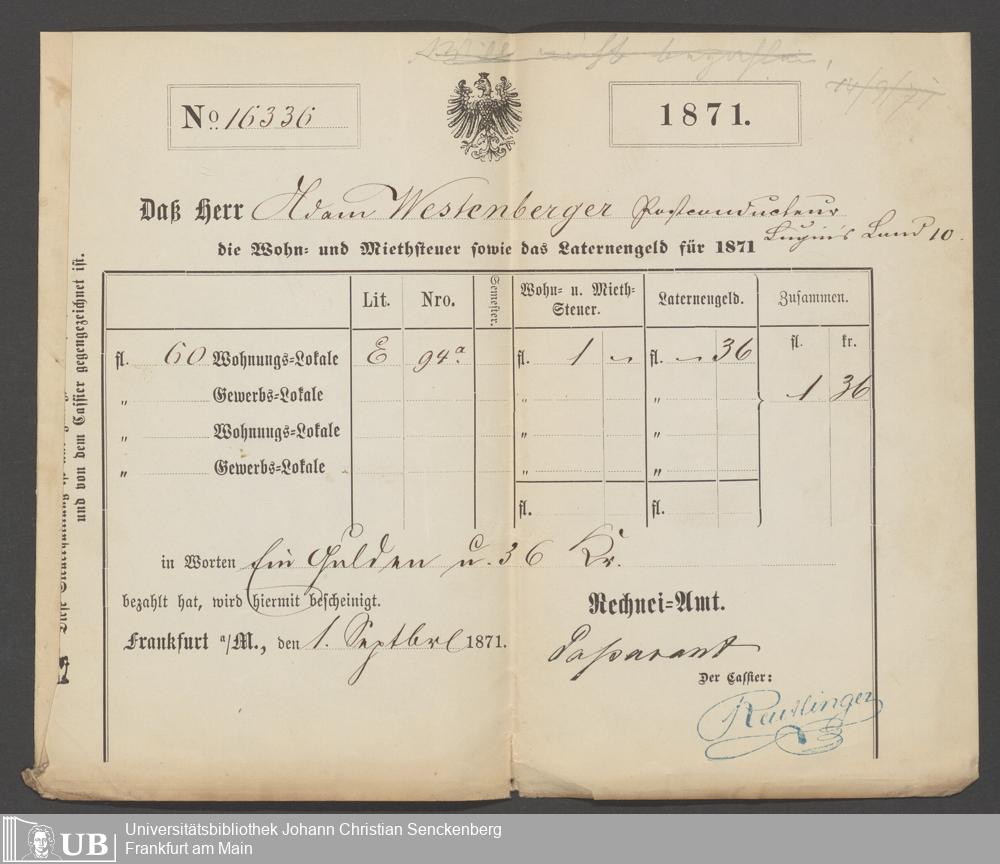 No 16336
1871.
Daß Herr Adam Westenberger Postconducteur
Lugin's Land 10.
die Wohn- und Miethsteuer sowie das Laternengeld für 1871
Lit. Nro. Semester. Wohn- u. Mieth-Steuer. Laternengeld. Zusammen.
fl. kr.
fl. 60 Wohnungs-Lokale E 94a. fl. 1 „ fl. „ 36
„ Gewerbs-Lokale „ „ 1 36
„ Wohnungs-Lokale „ „
„ Gewerbs-Lokale „ „
fl. fl.
in Worten Ein Gulden u. 36 Kr.
bezahlt hat, wird hiermit bescheinigt.
Rechnei-Amt.
Frankfurt a/M., den 1. Septbr 1871.
Passavant
Der Cassier:
und von dem Cassier gegengezeichnet ist.
UB
Universitätsbibliothek Johann Christian Senckenberg
Frankfurt am Main